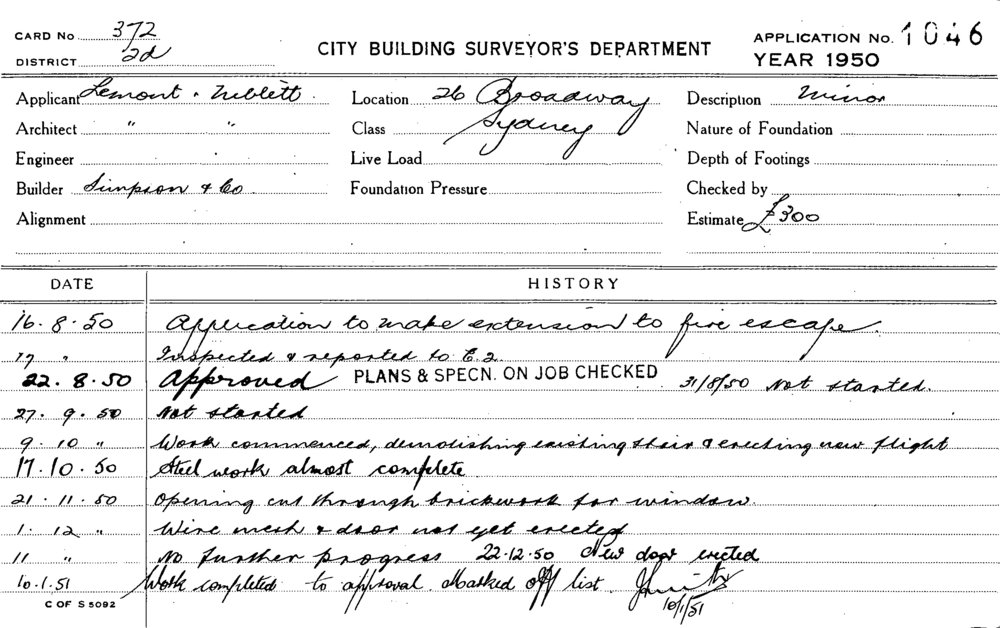 CARD No 372
DISTRICT 2d
CITY BUILDING SURVEYOR'S DEPARTMENT
APPLICATION No. 1046
YEAR 1950
Applicant Lemont & Niblett.
Architect " "
Engineer
Builder Simpson & Co.
Alignment
Location 26 Broadway
Class Sydney
Live Load
Foundation Pressure
Description Minor
Nature of Foundation
Depth of Footings
Checked by
Estimate £300
DATE HISTORY
16.8.50 Application to make extension to fire escape.
17 " Inspected & reported to E.2.
22.8.50 Approved PLANS & SPECN. ON JOB CHECKED 31/8/50 Not started.
27.9.50 Not started
9.10 " Work commenced, demolishing existing stair & erecting new flight
17.10.50 Steel work almost complete
21.11.50 Opening cut through brickwork for window.
1.12 " Wire mesh & door not yet erected
11 " No further progress 22.12.50 New door erected
10.1.51 Work completed to approval. Marked off list.
10/1/51
C OF S 5092